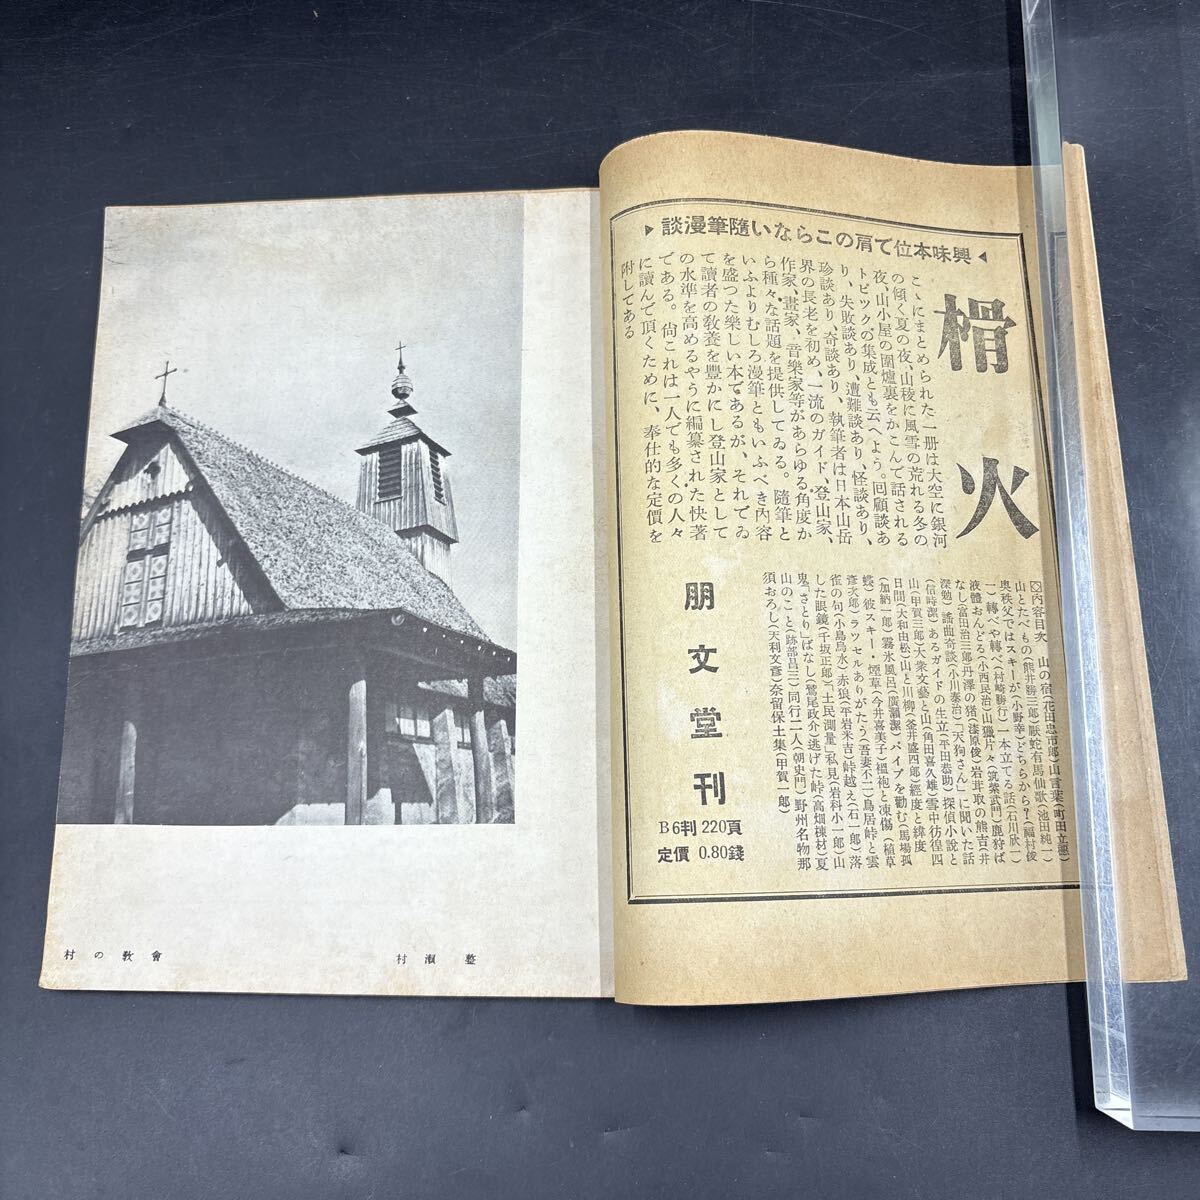 興味本位で肩のこらない隨筆漫談
榾火
こゝにまとめられた一册は大空に銀河
の傾く夏の夜、山稜に風雪の荒れる冬の
夜、山小屋の圍爐裏をかこんで話される
トピツクの集成とも云へよう。回顧談あ
り、失敗談あり、遭難談あり、怪談あり、
珍談あり、奇談あり、執筆者は日本山岳
界の長老を初め、一流のガイド、登山家、
作家、畫家、音樂家等があらゆる角度か
ら種々な話題を提供してゐる。隨筆と
いふよりむしろ漫筆ともいふべき内容
を盛つた樂しい本であるが、それでゐ
て讀者の敎養を豊かにし登山家として
の水準を高めるやうに編纂された快著
である。尙これは一人でも多くの人々
に讀んで頂くために、奉仕的な定價を
附してある
◇内容目次 山の宿(花田忠市郎)山言葉(町田立穂)
山とたべもの(熊井勝三郎)厭蛇有馬仙歌(池田純一)
奥秩父ではスキーが(小野幸)どちらから?(福村俊
一)轉べや轉べ(村崎勝行)一本立てる話(石川欣一)
液體おんどる(小西民治)山獵片々(筑紫武門)鹿狩ば
なし(富田治三郎)丹澤の猪(漆原俊)岩茸取の熊吉(井
深勉)謠曲奇談(小川泰治)「天狗さん」に聞いた話
(信時潔)あるガイドの生立(平田恭助)探偵小說と
山(甲賀三郎)大衆文藝と山(角田喜久雄)雪中彷徨四
日間(大和由松)山と川柳(釜井盛四郎)經度と緯度
(加納一郎)霧氷風呂(廣瀨潔)パイプを勸む(馬場孤
蝶)彼スキー・煙草(今井喜美子)縕袍と凍傷(植草
彥次郎)ラツセルありがたう(吾妻不二)鳥居峠と雲
雀の句(小島烏水)赤狼(平岩米吉)峠越え(石一郎)落
した眼鏡(千坂正郎)「土民測量」私見(岩科小一郎)山
鬼「さとり」ばなし(鷲尾政介)逃げた峠(高畑棟材)夏
山のこと(跡部昌三)同行二人(朝史門)野州名物那
須おろし(天利文彥)奈留保土集(甲賀一郎)
朋文堂刊
B6判 220頁
定價 0.80錢
村の敎會
村瀨整